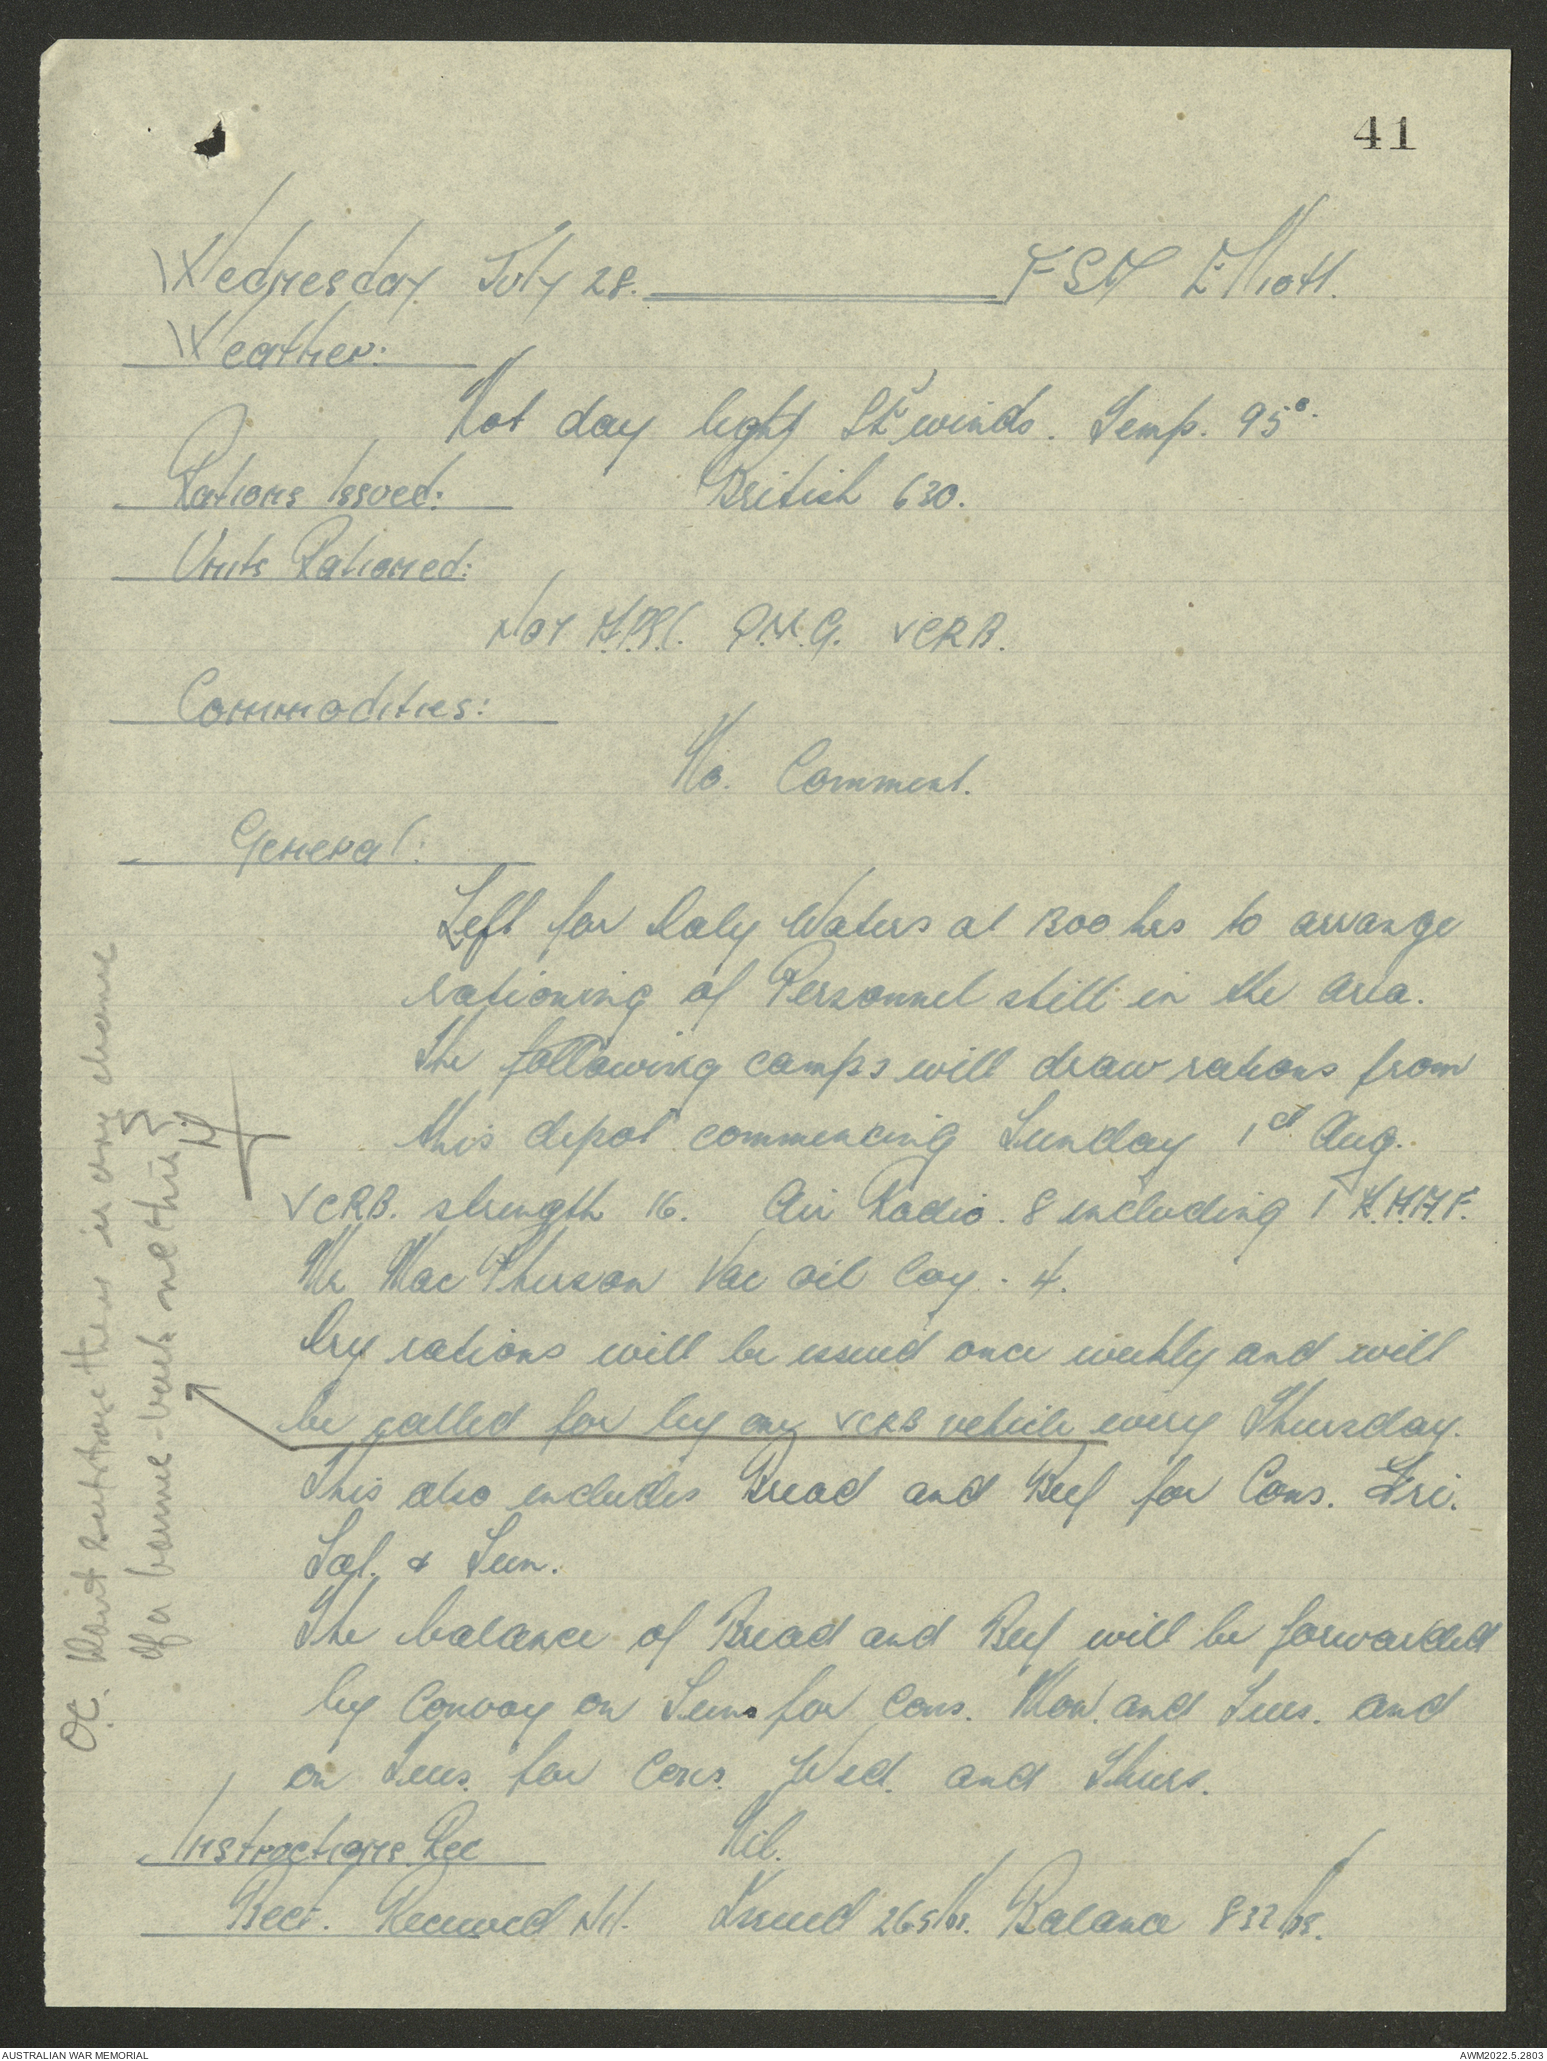 41
Wednesday July 28. FSD Elliott.
Weather:
Hot day light SE winds. Temp. 95°.
Rations Issued: British 630.
Units Rationed:
Nor P.M.G. VCRB.
Commodities:
No. Comment.
General:
Left for Daly Waters at 1300 hrs to arrange
rationing of Personnel still in the area.
The following camps will draw rations from
this depot commencing Sunday 1st Aug.
VCRB. strength 16. Air Radio. 8 including 1
Mr MacPherson Vac oil Coy. - 4.
Dry rations will be issued once weekly and will
be called for by any VCRB vehicle every Thursday.
This also includes Bread and Beef for Cons. Fri.
Sat. & Sun.
The balance of Bread and Beef will be forwarded
by Convoy on Suns for Cons. Mon. and Tues. and
on Tues. for Cons. Wed. and Thurs.
Instructions Rec Nil.
Beef. Received Nil. Issued 265lbs. Balance 832lbs.
OC. there is any chance
of a
AUSTRALIAN WAR MEMORIAL
AWM2022.5.2803